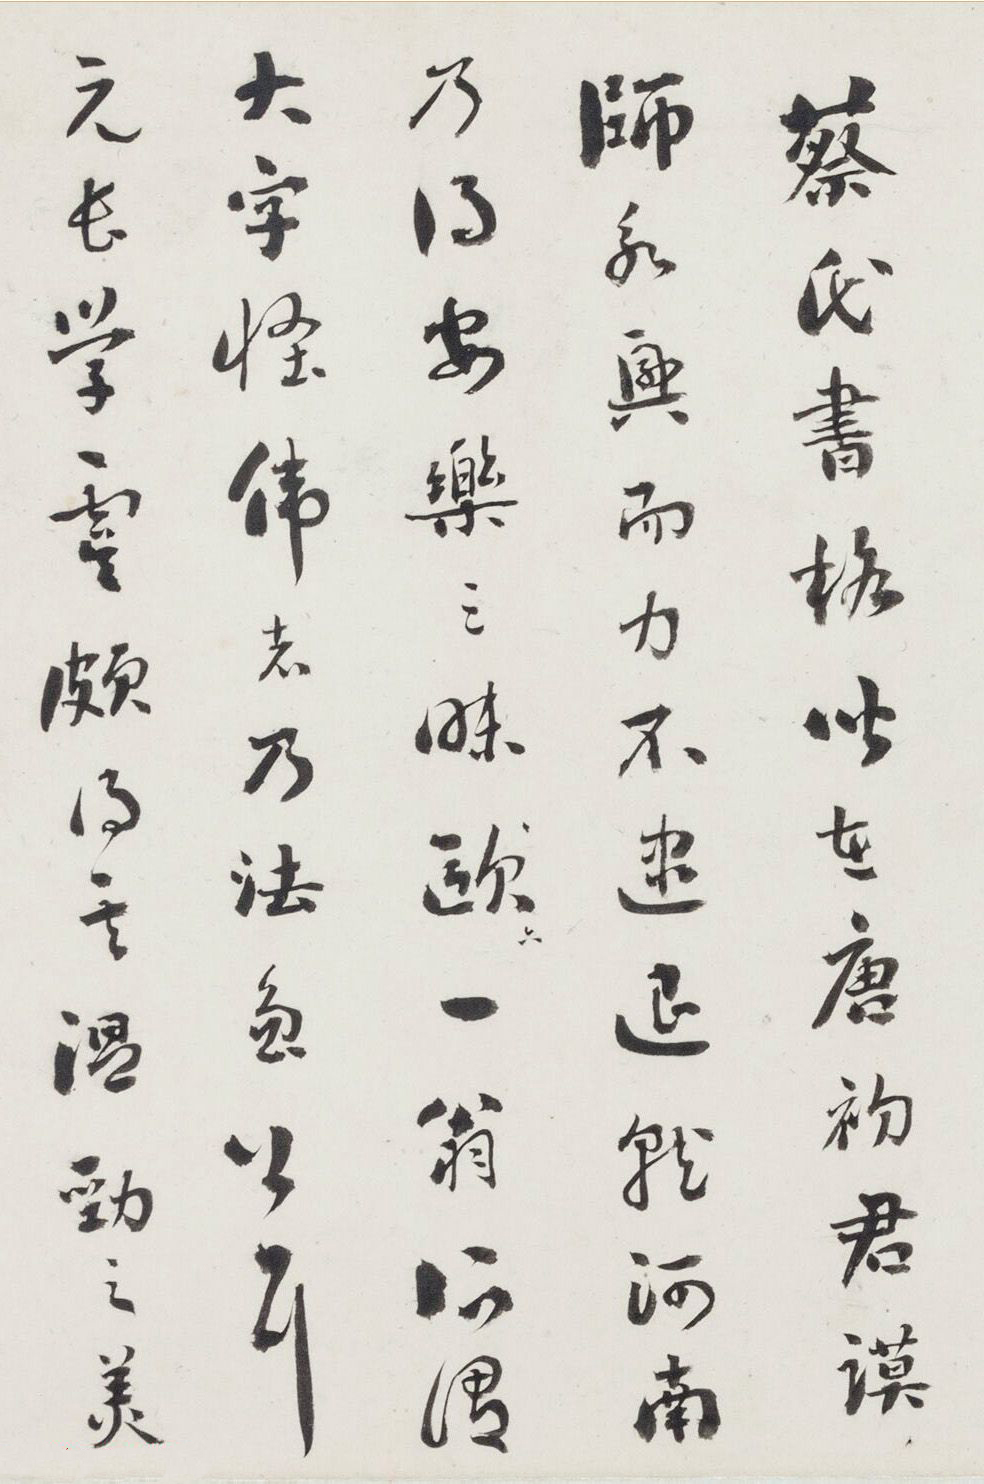 蔡氏書格皆在唐初君謨
師永興而力不逮退就河南
乃得安樂三昧歐六一翁所謂
大字怪偉者乃法魯公耳
元長學虞頗得其溫勁之美